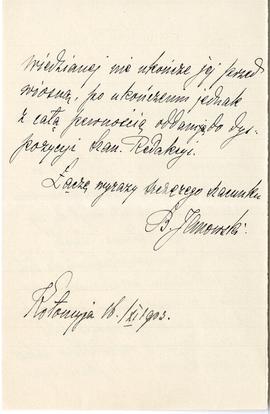 wiedzianej nie ukończę jej przed
wiosną, po ukończeniu jednak
z całą pewnością oddam ją do dys-
pozycyi Szan. Redakcyi.
Łączę wyrazy szczerego szacunku
B. Janowski
Kołomyja 18/XI 1903.